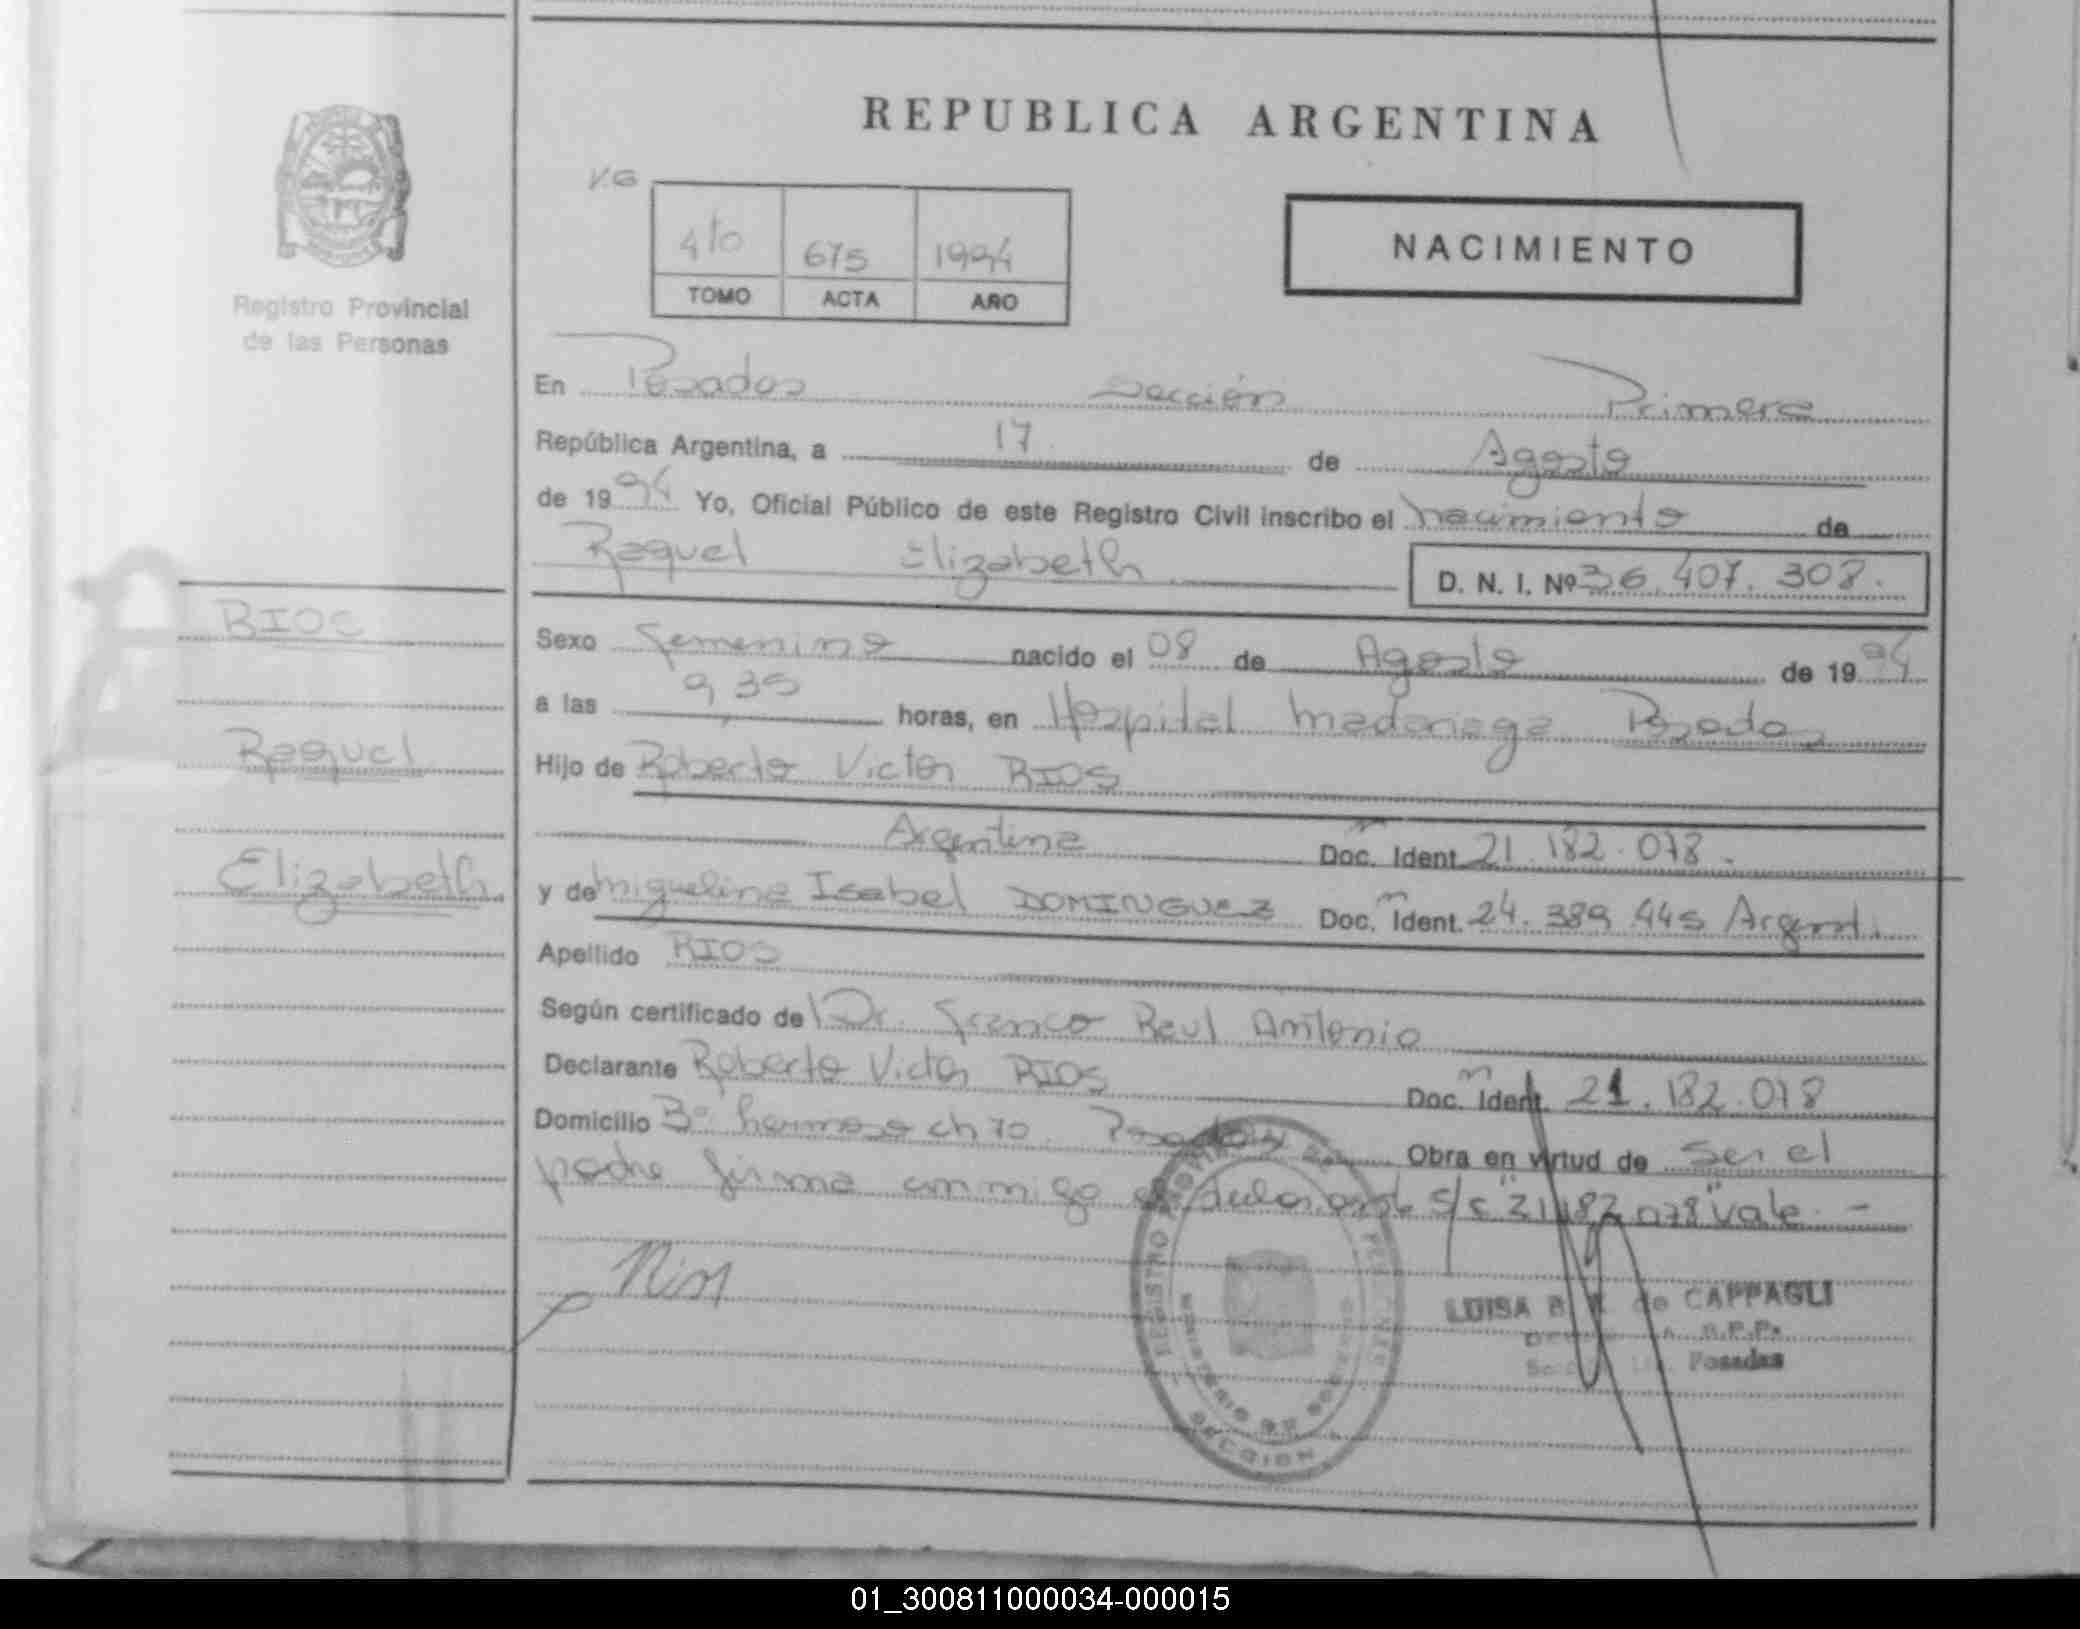 REPUBLICA ARGENTINA
V.G
4to 675 1994
TOMO ACTA AÑO
NACIMIENTO
Registro Provincial
de las Personas
En Posadas Sección Primera
República Argentina, a 17 de Agosto
de 1994 Yo, Oficial Público de este Registro Civil inscribo el nacimiento de
Raquel Elizabeth D. N. I. Nº 36.407.308.
RIOS
Raquel
Elizabeth
Sexo femenino nacido el 08 de Agosto de 1994
a las 9,35 horas, en Hospital Madariaga Posadas
Hijo de Roberto Victor RIOS
Argentina Doc. Ident. 21.182.078.
y de Miguelina Isabel DOMINGUEZ Doc. Ident. 24.389.445 Argent.
Apellido RIOS
Según certificado de Dr. Franco Raul Antonio
Declarante Roberto Victor RIOS Doc. Ident. 21.182.078
Domicilio Bº hermoso ch 70. Posadas Obra en virtud de ser el
padre firma conmigo el declarante S/C "21.182.078" vale. -
REGISTRO
MINISTERIO DE GOBIERNO
SECCION
LUISA de CAPPAGLI
R.P.P.
Posadas
01_300811000034-000015